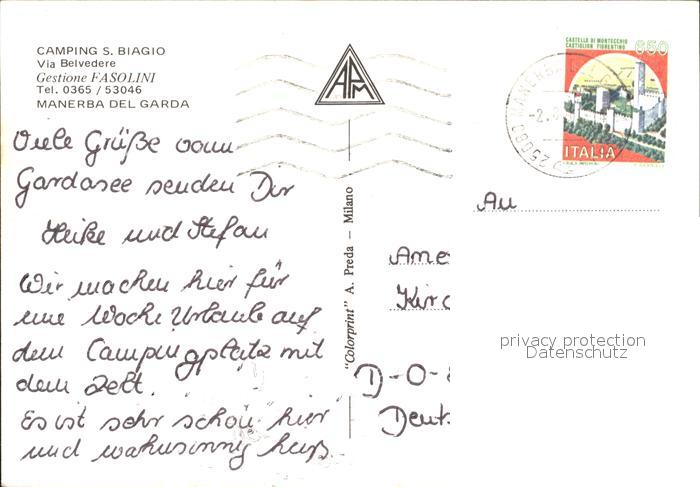 CAMPING S. BIAGIO
Via Belvedere
Gestione FASOLINI
Tel. 0365 / 53046
MANERBA DEL GARDA
Viele Grüße vom
Gardasee senden Dir
Heike und Stefan
Wir machen hier für
eine Woche Urlaub auf
dem Campingplatz mit
dem Zelt.
Es ist sehr schön hier
und wahnsinnig heiß.
APM
"Colorprint" A. Preda — Milano
CASTELLO DI MONTECCHIO
CASTIGLION FIORENTINO
650
ITALIA
25080 MANERBA
-2.
An
Ame
Kirc
D-O-
Deut
privacy protection
Datenschutz